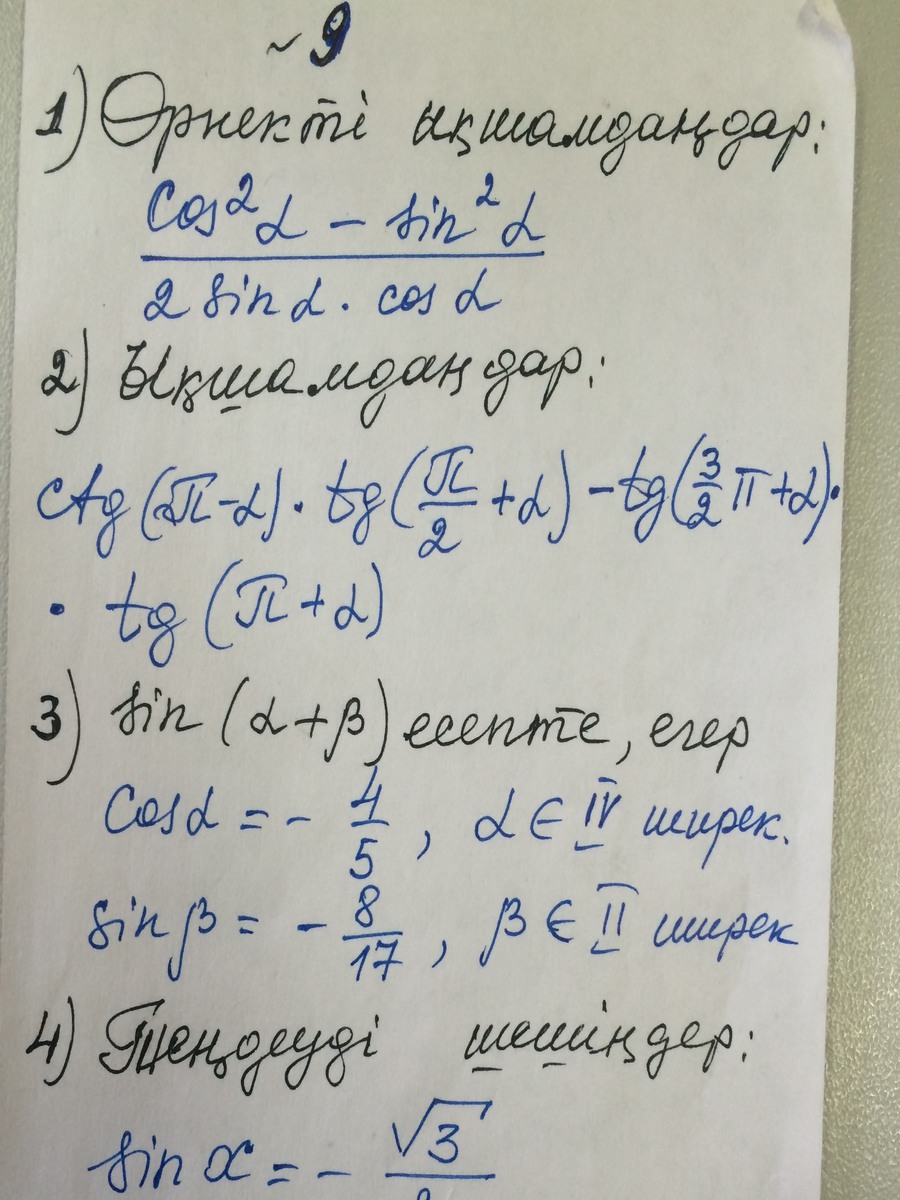 ~ 9
1) Өрнекті ықшамдаңдар:
cos²α - sin²α
2 sin α · cos α
2) Ықшамдаңдар:
ctg (2π-α) · tg (π/2 + α) - tg (3/2 π + α) ·
· tg (π + α)
3) sin (α + β) есепте, егер
cos α = - 4/5, α ∈ IV ширек.
sin β = - 8/17, β ∈ II ширек
4) Теңдеуді шешіңдер:
sin x = - √3